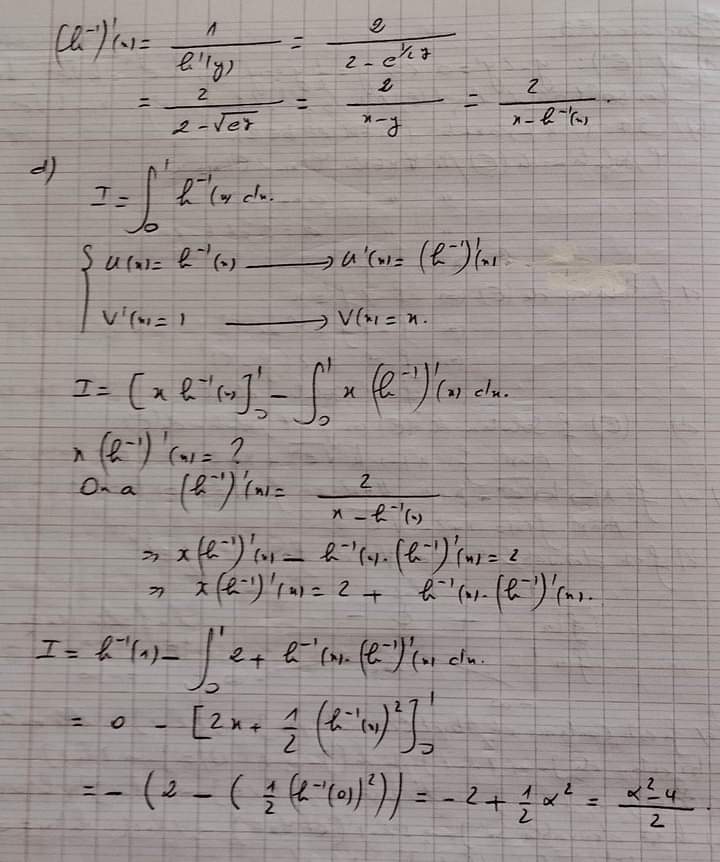 (h⁻¹)'(x) = 1/h'(y) = 2/(2 - e^(1/2 y))
= 2/(2 - √e^y) = 2/(x - y) = 2/(x - h⁻¹(x)).
d)
I = ∫₀¹ h⁻¹(x) dx.
{ u(x) = h⁻¹(x) ⟶ u'(x) = (h⁻¹)'(x)
V'(x) = 1 ⟶ V(x) = x.
I = [x h⁻¹(x)]₀¹ - ∫₀¹ x (h⁻¹)'(x) dx.
x (h⁻¹)'(x) = ?
On a (h⁻¹)'(x) = 2/(x - h⁻¹(x))
⇒ x(h⁻¹)'(x) - h⁻¹(x).(h⁻¹)'(x) = 2
⇒ x(h⁻¹)'(x) = 2 + h⁻¹(x).(h⁻¹)'(x).
I = h⁻¹(1) - ∫₀¹ 2 + h⁻¹(x).(h⁻¹)'(x) dx.
= 0 - [2x + 1/2 (h⁻¹(x))²]₀¹
= - (2 - (1/2 (h⁻¹(0))²)) = -2 + 1/2 α² = (α² - 4)/2.